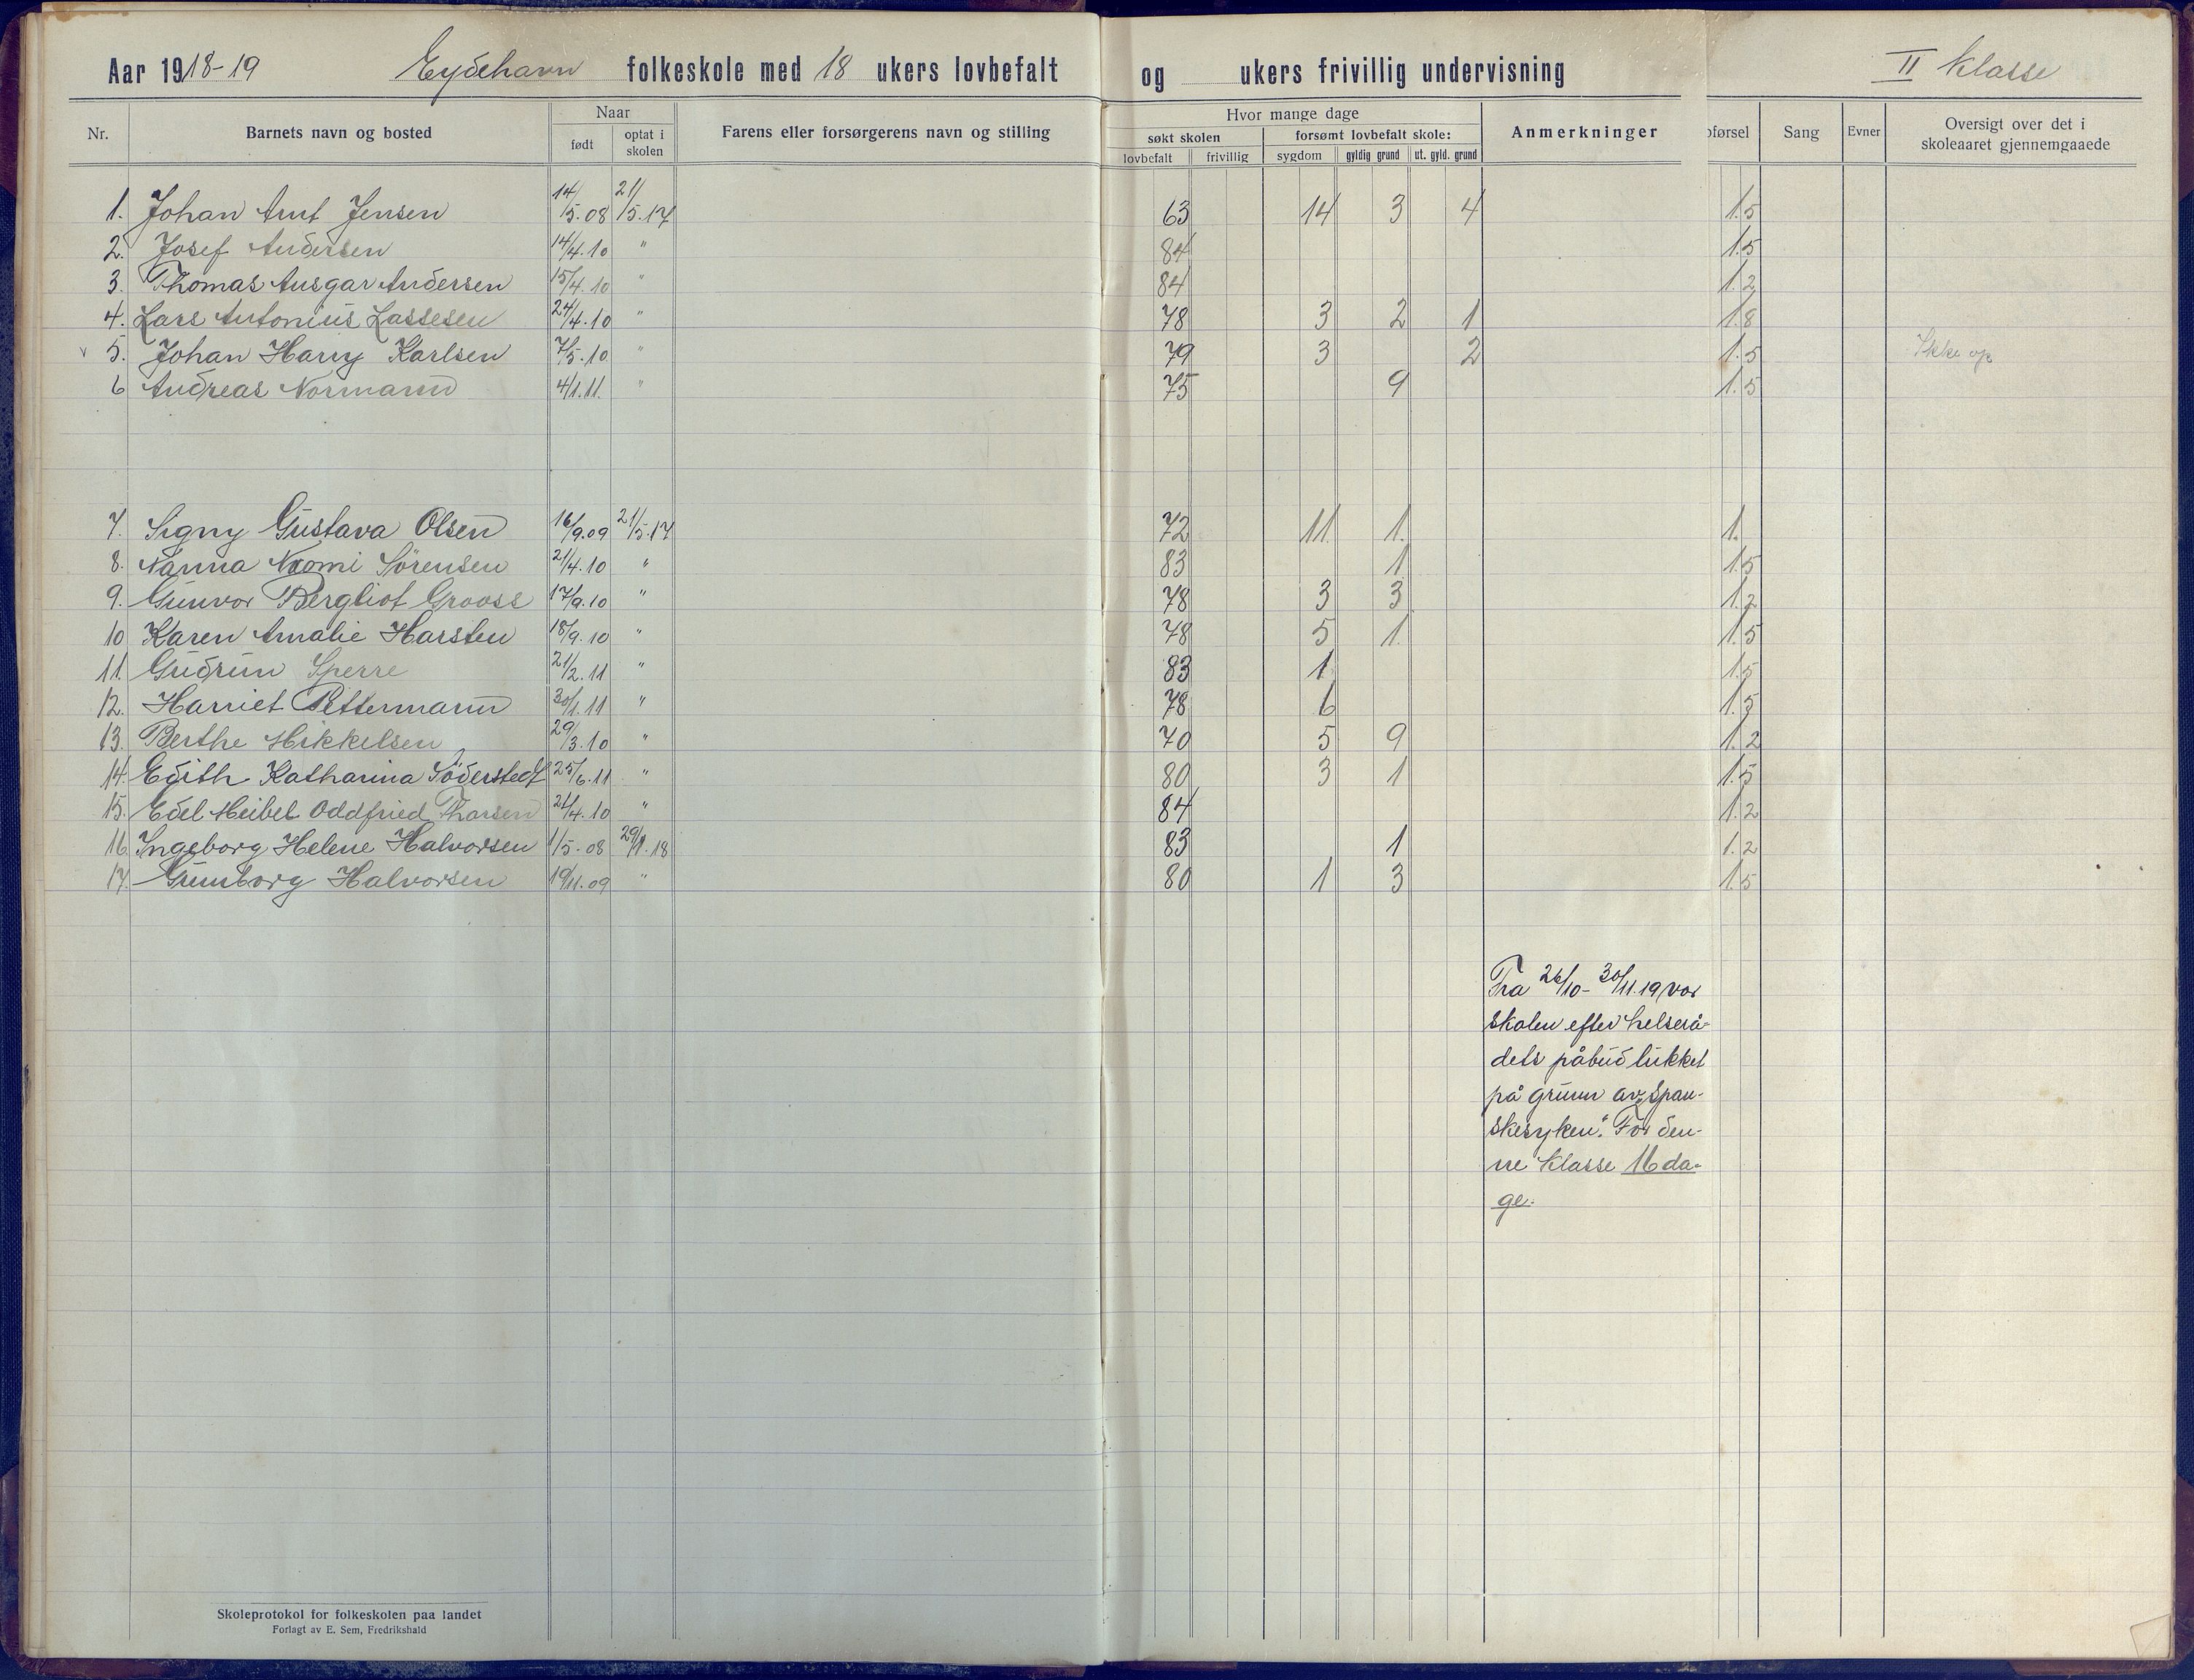 Aar 1918-19 Eydehavn folkeskole med 18 ukers lovbefalt og ukers frivillig undervisning II klasse
Nr. Barnets navn og bosted Naar født optat i skolen Farens eller forsørgerens navn og stilling Hvor mange dage søkt skolen lovbefalt frivillig forsømt lovbefalt skole: sygdom gyldig grund ut. gyld. grund Anmerkninger førsel Sang Evner Oversigt over det i skoleaaret gjennemgaaede
1. Johan Arnt Jensen 14/5.08 21/5.17 63 14 3 4 1.5
2. Josef Andersen 14/4.10 " 84 1.5
3. Thomas Ansgar Andersen 15/4.10 " 84 1.2
4. Lars Antonius Lassesen 24/4.10 " 78 3 2 1 1.8
v 5. Johan Harry Karlsen 7/5.10 " 79 3 2 1.5 Ikke op
6 Andreas Normann 4/1.11. " 75 9 1.5
7. Signy Gustava Olsen 16/9.09 21/5.17 72 11 1. 1.
8. Nanna Naomi Sørensen 21/4.10 " 83 1 1.5
9. Gunvor Bergliot Grooss 17/9.10 " 78 3 3 1.2
10 Karen Amalie Harsten 18/9.10 " 78 5 1. 1.5
11. Gudrun Sperre 21/2.11 " 83 1 1.5
12. Harriet Pettermann 30/1.11 " 78 6 1.5
13. Berthe Mikkelsen 29/3.10 " 70 5 9 1.2
14. Edith Katharina Söderstedt 25/6.11 " 80 3 1 1.5
15. Edel Meibel Oddfried Thorsen 21/4.10 " 84 1.2
16. Ingeborg Helene Halvorsen 1/5.08 29/1.18 83 1 1.2
17. Gunnborg Halvorsen 19/11.09 " 80 1 3 1.5
Fra 26/10 - 30/11.19 var
skolen efter helserå-
dets påbud lukket
på grunn av „Span-
skesyken". For den-
ne klasse 16 da-
ge.
Skoleprotokol for folkeskolen paa landet
Forlagt av E. Sem, Fredrikshald